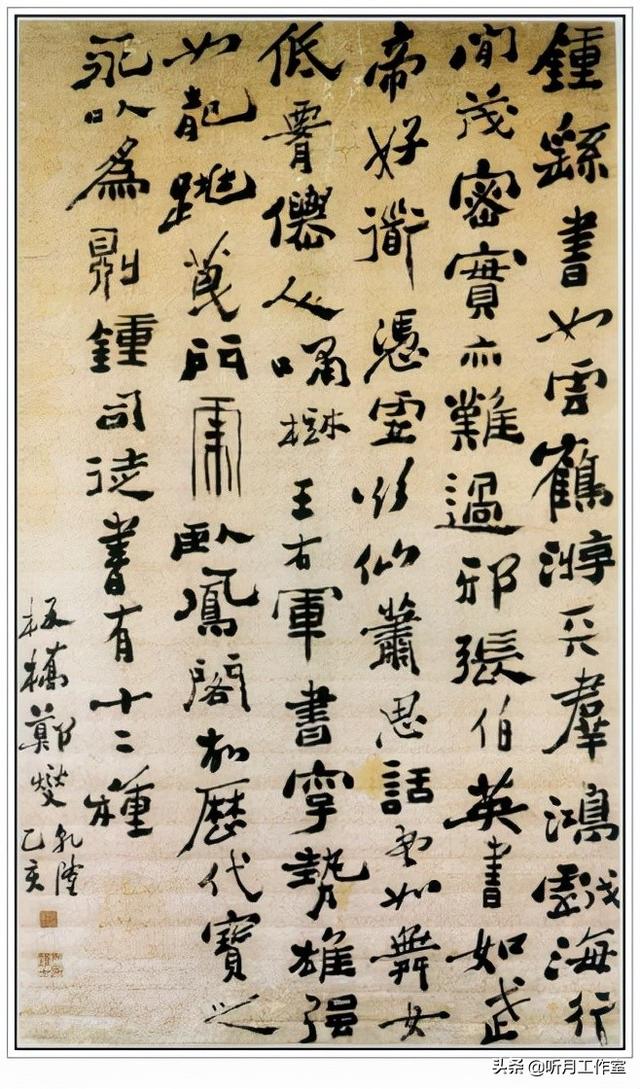 鍾繇書如雲鶴游天羣鴻戲海行
間茂密實亦難過邪張伯英書如武
帝好衜憑虛欲仙蕭思話書如舞女
低腰僊人嘯樹王右軍書字勢雄強
如龍跳天門虎臥鳳閣故歷代寶之
永以爲訓鍾司徒書有十二種
乾隆
乙亥
板橋鄭燮
头条 @听月工作室